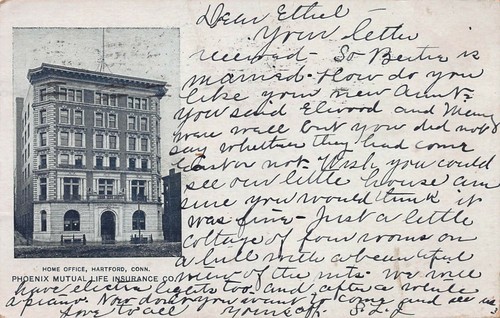 Dear Ethel
Your letter
received - So Bertie is
married - How do you
like your new Aunt -
You said Elwood and Mary
were well but you did not
say whether they had come
East or not. Wish you could
see our little house am
sure you would think it
was fine - Just a little
cottage of four rooms on
a hill with a beautiful
view of the mts. We will
have electric lights too and after a while
a piano. Now don't you want to come and see us
love to all yours aff. S. L. L
HOME OFFICE, HARTFORD, CONN.
PHOENIX MUTUAL LIFE INSURANCE CO.